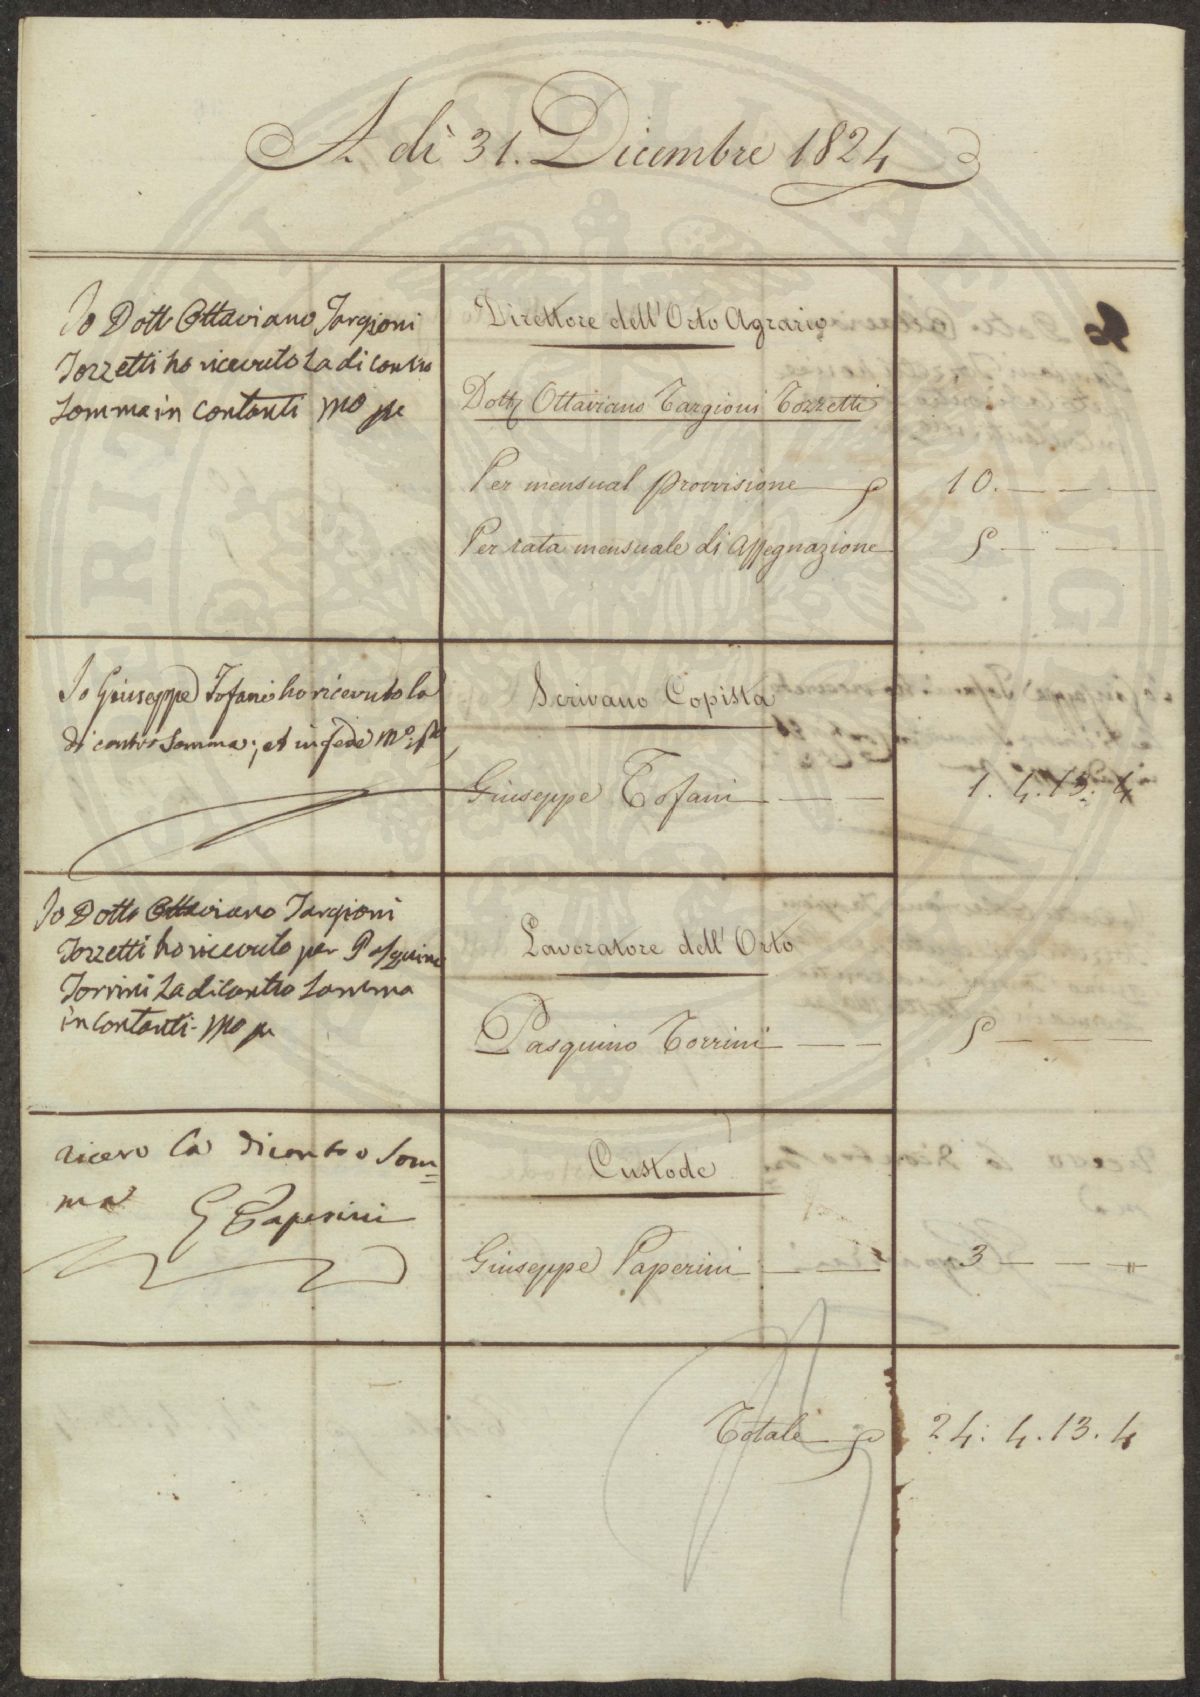 A dì 31. Dicembre 1824
Io Dott Ottaviano Targioni
Tozzetti ho ricevuto La di contro
Somma in contanti mo pa
Direttore dell'Orto Agrario
Dott Ottaviano Targioni Tozzetti
Per mensual provvisione 10. — — —
Per rata mensuale di Assegnazione 5 — — —
Io Giuseppe Tofani ho ricevuto la
di contro Somma; et in fede Mo. pa
Scrivano Copista
Giuseppe Tofani — — 1. 4. 13. 4
Io Dott Ottaviano Targioni
Tozzetti ho ricevuto per Pasquino
Torrini La di contro Somma
in contanti - mo pa
Lavoratore dell'Orto
Pasquino Torrini — — 5 — — —
ricevo la dicontro Som=
ma G Paperini
Custode
Giuseppe Paperini — — 3 — — —
Totale 24. 4. 13. 4